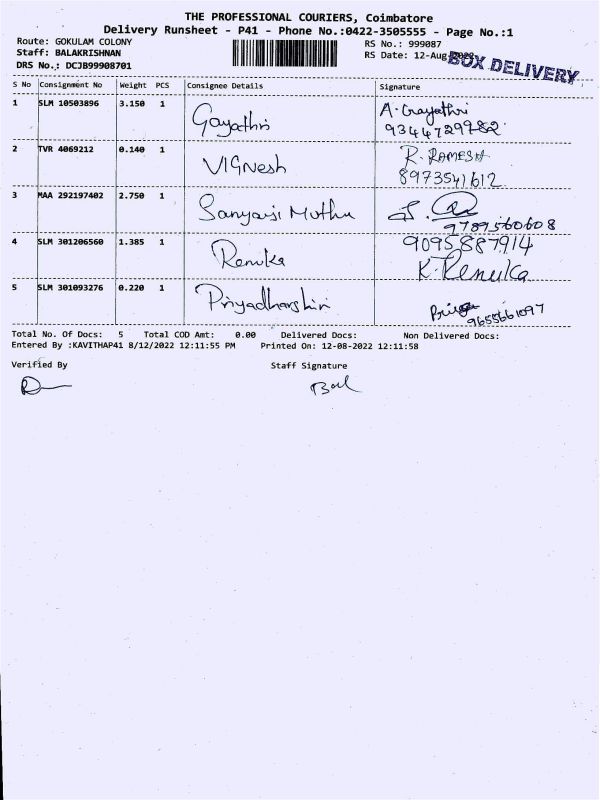 THE PROFESSIONAL COURIERS, Coimbatore
Delivery Runsheet - P41 - Phone No.:0422-3505555 - Page No.:1
Route: GOKULAM COLONY
RS No.: 999087
Staff: BALAKRISHNAN
RS Date: 12-Aug
BOX DELIVERY
DRS No.: DCJB99908701
S No Consignment No Weight PCS Consignee Details Signature
1 SLM 10503896 3.150 1 Gayathri A. Gayathri
9344729982
2 TVR 4069212 0.140 1 VIGNesh R. RAMESH
8973541612
3 MAA 292197402 2.750 1 Sanyasi Muthu
9789560608
4 SLM 301206560 1.385 1 Renuka 9095887914
K. Renuka
5 SLM 301093276 0.220 1 Priyadharshini Priya
9655661097
Total No. Of Docs: 5 Total COD Amt: 0.00 Delivered Docs: Non Delivered Docs:
Entered By :KAVITHAP41 8/12/2022 12:11:55 PM Printed On: 12-08-2022 12:11:58
Verified By Staff Signature